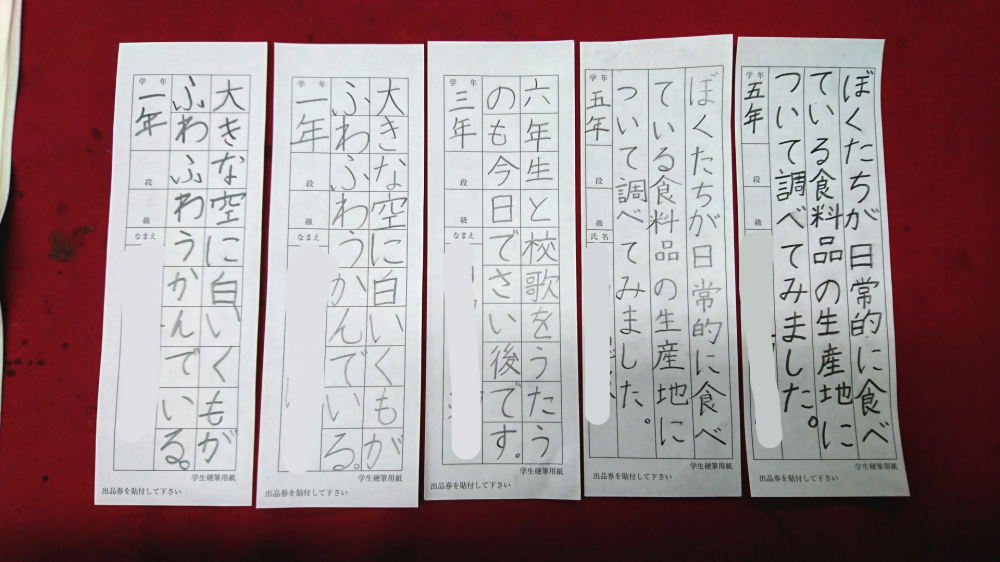 大きな空に白いくもが
ふわふわうかんでいる。
学年
一年
段
級
なまえ
学生硬筆用紙
出品券を貼付して下さい
大きな空に白いくもが
ふわふわうかんでいる。
学年
一年
段
級
なまえ
学生硬筆用紙
出品券を貼付して下さい
六年生と校歌をうたう
のも今日でさい後です。
学年
三年
段
級
なまえ
学生硬筆用紙
出品券を貼付して下さい
ぼくたちが日常的に食べ
ている食料品の生産地に
ついて調べてみました。
学年
五年
段
級
氏名
学生硬筆用紙
出品券を貼付して下さい
ぼくたちが日常的に食べ
ている食料品の生産地に
ついて調べてみました。
学年
五年
段
級
学生硬筆用紙
出品券を貼付して下さい